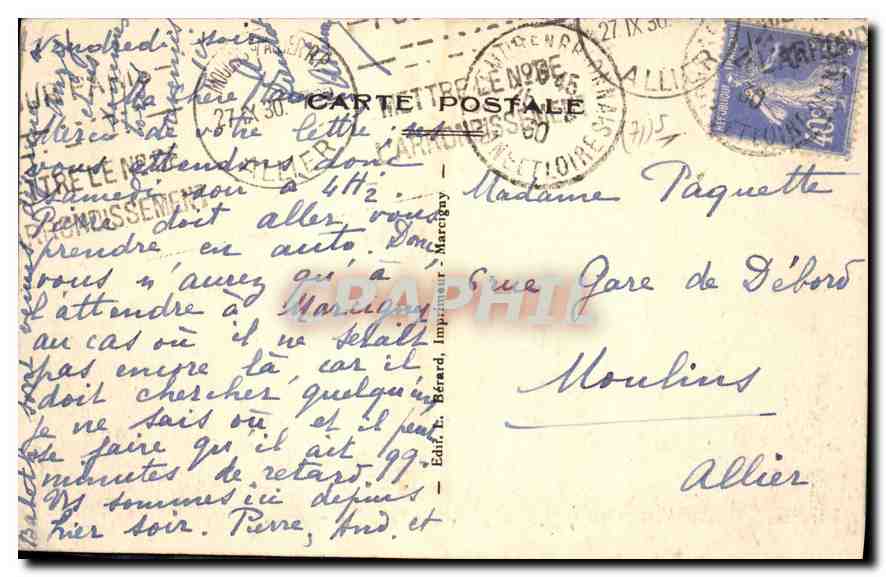 Vendredi soir
Ma chère
Merci de votre lettre
vous attendons donc
samedi soir à 4H½.
Pierre doit aller vous
prendre en auto. Donc,
vous n'aurez qu'à
l'attendre à Marcigny
au cas où il ne serait
pas encore là, car il
doit chercher quelqu'un
je ne sais où, et il peut
se faire qu'il ait qq.
minutes de retard.
Ns sommes ici depuis
hier soir. Pierre, And. et
Babeth sont venus
CARTE POSTALE
Edit. E. Bérard, Imprimeur - Marcigny
Madame Paquette
6 rue Gare de Débord
Moulins
Allier
METTRE LE N° DE
L'ARRONDISSEMENT
27 IX 30
ALLIER
27 IX 30.
ALLIER
ET LOIRE
40c
GRAPHIL